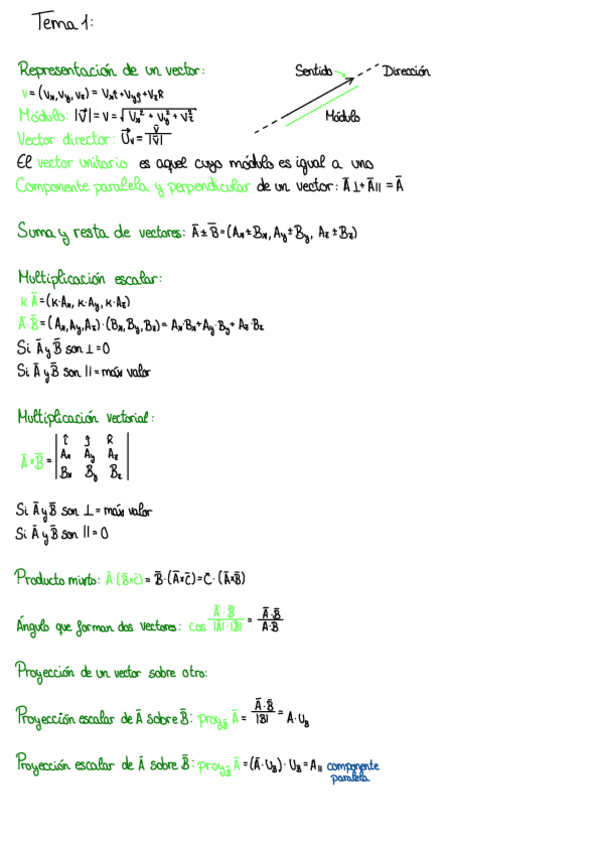 Tema 1:
Representación de un vector:
Sentido
Dirección
v = (vx, vy, vz) = vxî + vyĵ + vzk
Módulo: |v⃗| = v = √(vx² + vy² + vz²)
Módulo
Vector director: U⃗v = v̄/|v̄|
El vector unitario es aquel cuyo módulo es igual a uno
Componente paralela y perpendicular de un vector: Ā⊥ + Ā|| = Ā
Suma y resta de vectores: Ā ± B̄ = (Ax ± Bx, Ay ± By, Az ± Bz)
Multiplicación escalar:
k·Ā = (k·Ax, k·Ay, k·Az)
Ā·B̄ = (Ax, Ay, Az)·(Bx, By, Bz) = Ax·Bx + Ay·By + Az·Bz
Si Ā y B̄ son ⊥ = 0
Si Ā y B̄ son || = máx valor
Multiplicación vectorial:
î ĵ k
Ā×B̄ = | Ax Ay Az |
Bx By Bz
Si Ā y B̄ son ⊥ = máx valor
Si Ā y B̄ son || = 0
Producto mixto: Ā·(B̄×C̄) = B̄·(Ā×C̄) = C̄·(Ā×B̄)
Ángulo que forman dos vectores: cos Ā·B̄/|Ā|·|B̄| = Ā·B̄/A·B
Proyección de un vector sobre otro:
Proyección escalar de Ā sobre B̄: proyB̄ Ā = Ā·B̄/|B̄| = A·UB
Proyección escalar de Ā sobre B̄: proyB̄ Ā = (Ā·UB)·UB = A|| componente
paralela